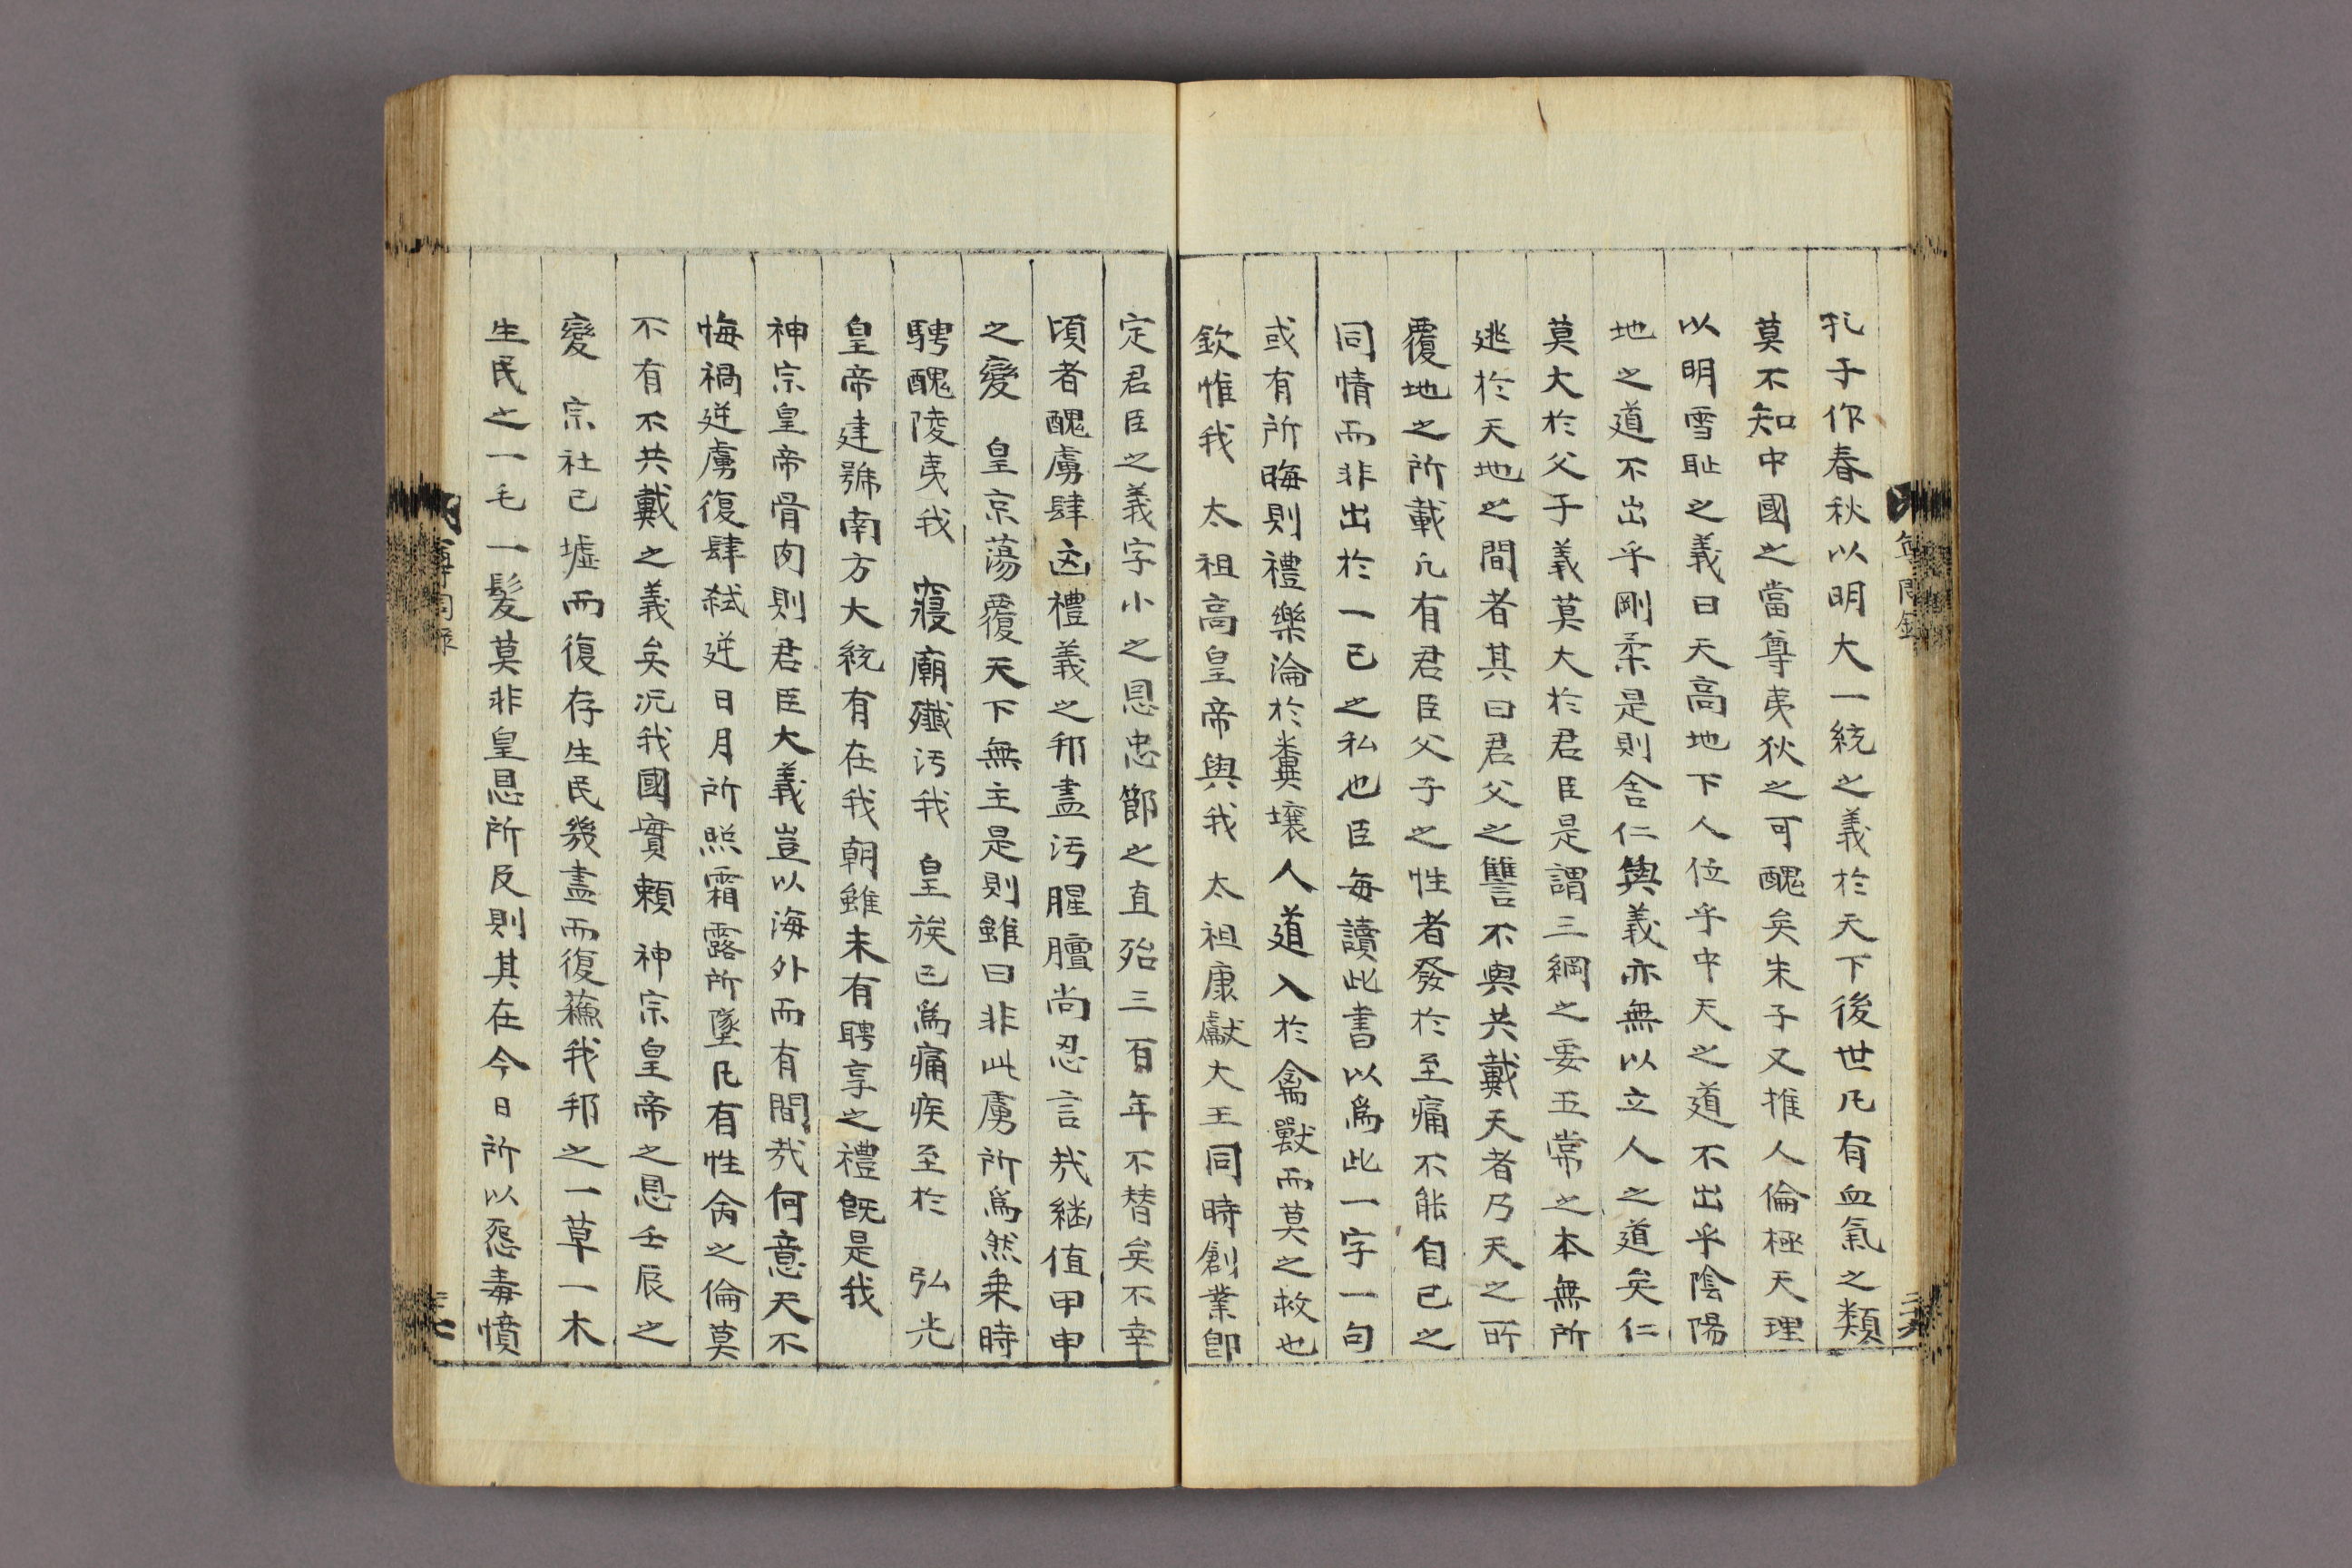 孔子作春秋以明大一統之義於天下後世凡有血氣之類
莫不知中國之當尊夷狄之可醜矣朱子又推人倫極天理
以明雪耻之義曰天高地下人位乎中天之道不出乎陰陽
地之道不出乎剛柔是則舍仁與義亦無以立人之道矣仁
莫大於父子義莫大於君臣是謂三綱之要五常之本無所
逃於天地之間者其曰君父之讐不與共戴天者乃天之所
覆地之所載凡有君臣父子之性者發於至痛不能自已之
同情而非出於一己之私也臣每讀此書以爲此一字一句
或有所晦則禮樂淪於糞壤人道入於禽獸而莫之救也
欽惟我 太祖高皇帝與我 太祖康獻大王同時創業卽
定君臣之義字小之恩忠節之直殆三百年不替矣不幸
頃者醜虜肆凶禮義之邦盡污腥膻尚忍言哉継值甲申
之變 皇京蕩覆天下無主是則雖曰非此虜所爲然乗時
騁醜陵夷我 寢廟殲污我 皇族已爲痛疾至於 弘光
皇帝建號南方大統有在我朝雖未有聘享之禮旣是我
神宗皇帝骨肉則君臣大義豈以海外而有間哉何意天不
悔禍逆虜復肆弑逆日月所照霜露所墜凡有性命之倫莫
不有不共戴之義矣况我國實賴 神宗皇帝之恩壬辰之
變 宗社已墟而復存生民幾盡而復蘓我邦之一草一木
生民之一毛一髮莫非皇恩所及則其在今日所以怨毒憤